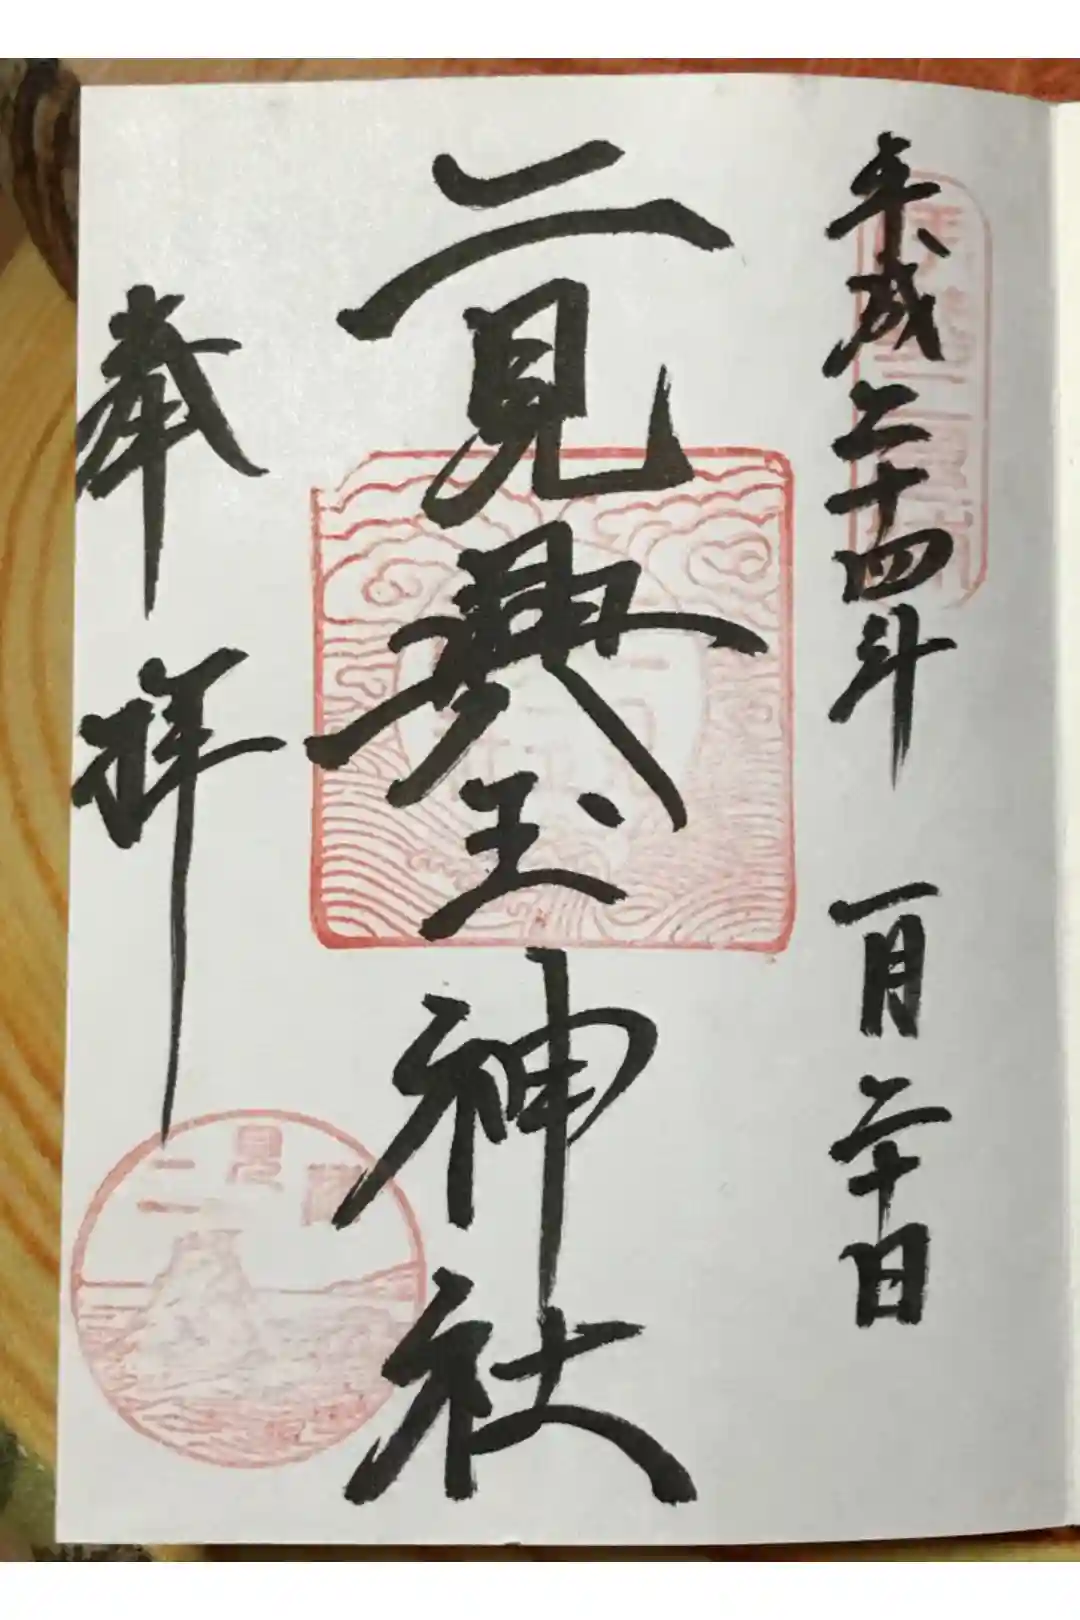 平成二十四年 一月二十日
二見興玉神社
奉拝
二見浦